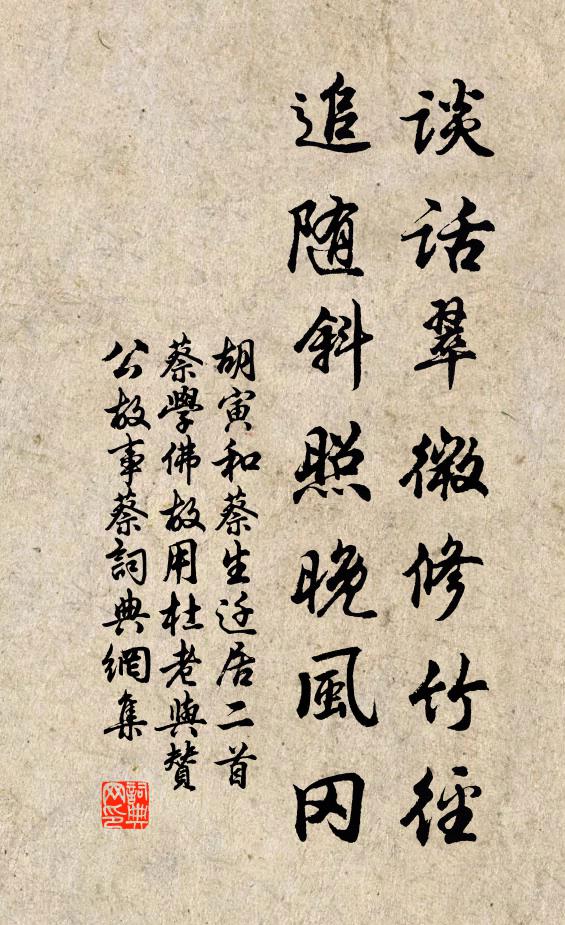 谈话翠微修竹径
追随斜照晚风冈
胡寅和蔡生迁居二首
蔡學佛故用杜老與贊
公故事蔡詞典網集
詞典
网印